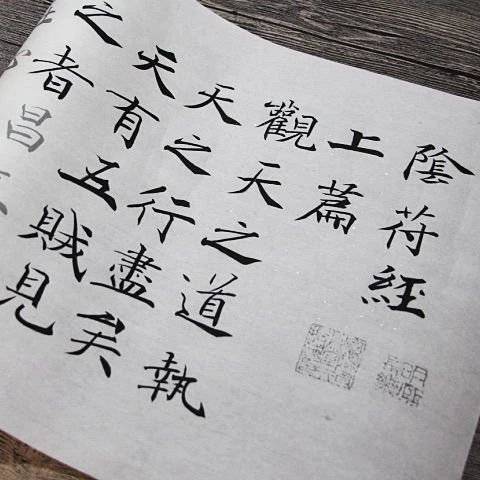 陰符經
上篇
觀天之道執
天之行盡矣
天有五賊見
之者昌